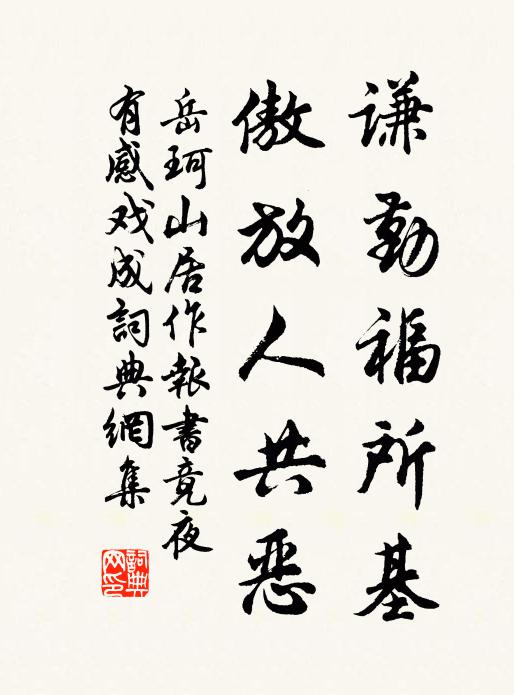 谦勤福所基
傲放人共恶
岳珂山居作報書竟夜
有感戏成詞典網集
詞典网印